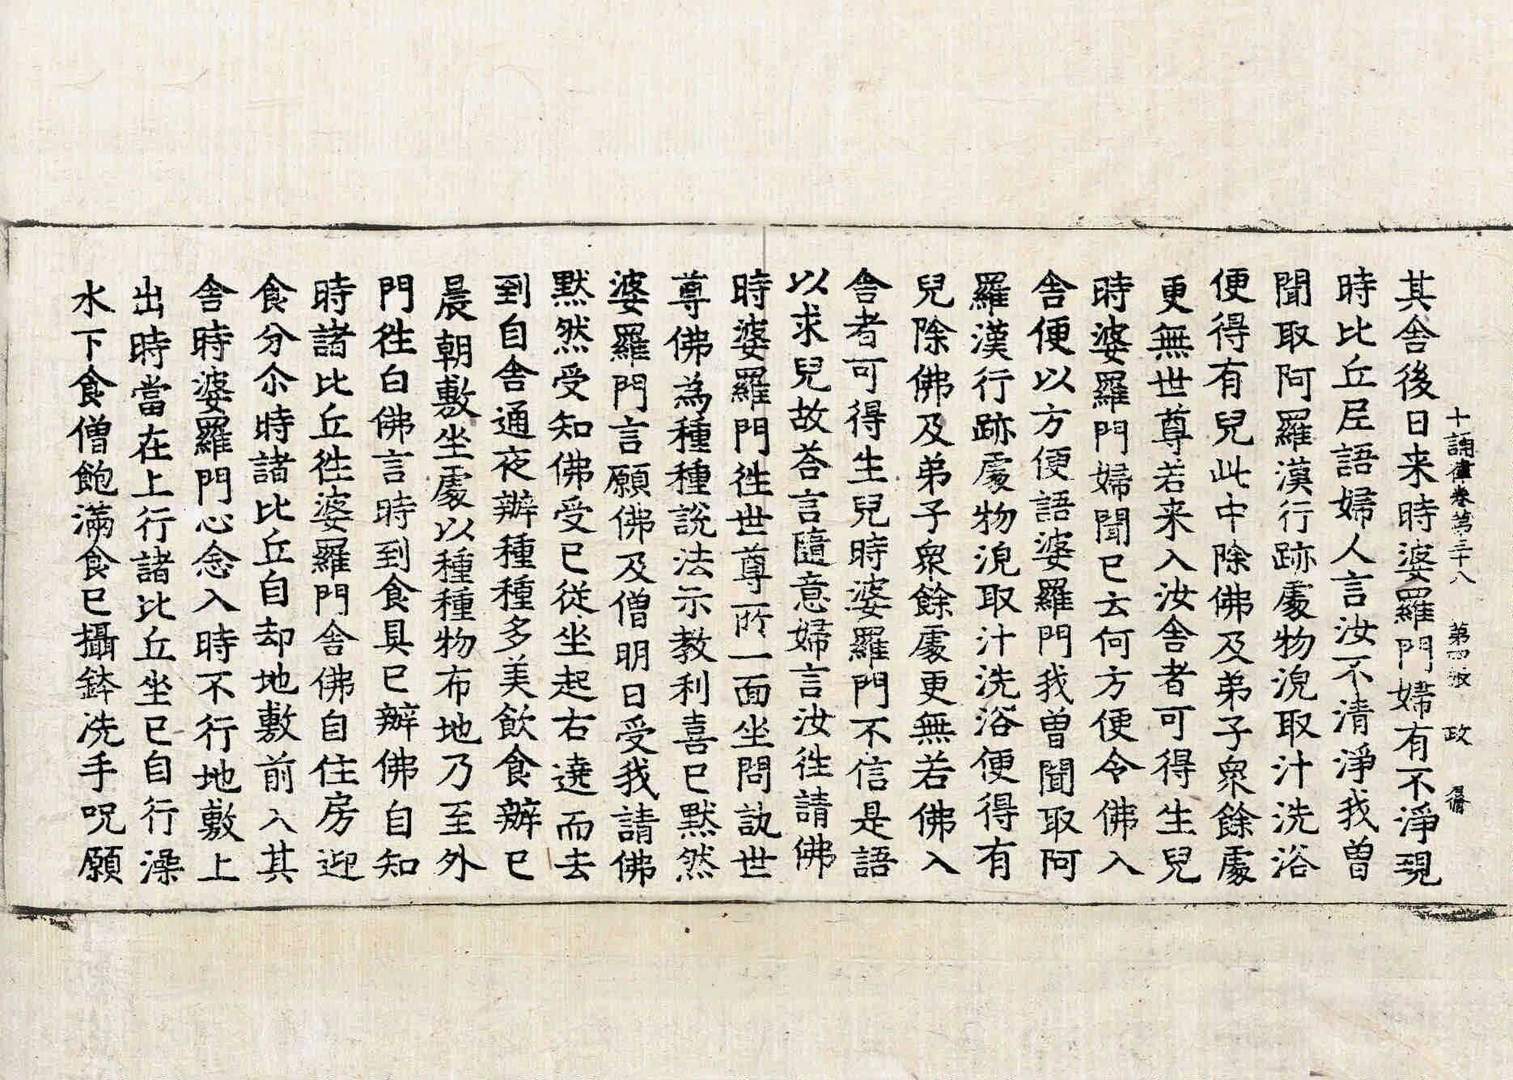 十誦律卷第三十八　第四張　政
其舍後日来時婆羅門婦有不淨現
時比丘尼語婦人言汝不清淨我曽
聞取阿羅漢行跡䖏物涗取汁洗浴
便得有兒此中除佛及弟子衆餘䖏
更無世尊若来入汝舍者可得生兒
時婆羅門婦聞已云何方便令佛入
舍便以方便語婆羅門我曽聞取阿
羅漢行跡䖏物涗取汁洗浴便得有
兒除佛及弟子衆餘䖏更無若佛入
舍者可得生兒時婆羅門不信是語
以求兒故荅言隨意婦言汝徃請佛
時婆羅門徃世尊所一面坐問訊世
尊佛為種種說法示教利喜已黙然
婆羅門言願佛及僧明日受我請佛
黙然受知佛受已従坐起右遶而去
到自舍通夜辦種種多美飲食辦已
晨朝敷坐䖏以種種物布地乃至外
門徃白佛言時到食具已辦佛自知
時諸比丘徃婆羅門舍佛自住房迎
食分尒時諸比丘自却地敷前入其
舍時婆羅門心念入時不行地敷上
出時當在上行諸比丘坐已自行澡
水下食僧飽滿食已攝鉢洗手呪願